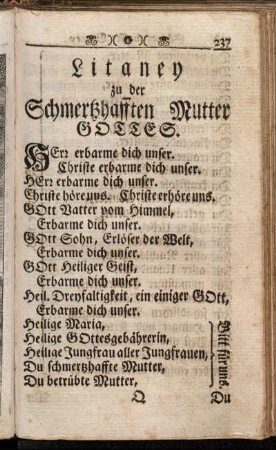 237
Litaney
zu der
Schmertzhafften Mutter
GOTTES.
HErr erbarme dich unser.
Christe erbarme dich unser.
HErr erbarme dich unser.
Christe höre uns. Christe erhöre uns.
GOtt Vatter vom Himmel,
Erbarme dich unser.
GOtt Sohn, Erlöser der Welt,
Erbarme dich unser.
GOtt Heiliger Geist,
Erbarme dich unser.
Heil. Dreyfaltigkeit, ein einiger GOtt,
Erbarme dich unser.
Heilige Maria,
Heilige GOttesgebährerin,
Heilige Jungfrau aller Jungfrauen,
Du schmertzhaffte Mutter,
Du betrübte Mutter,
Bitt für uns.
Q Du